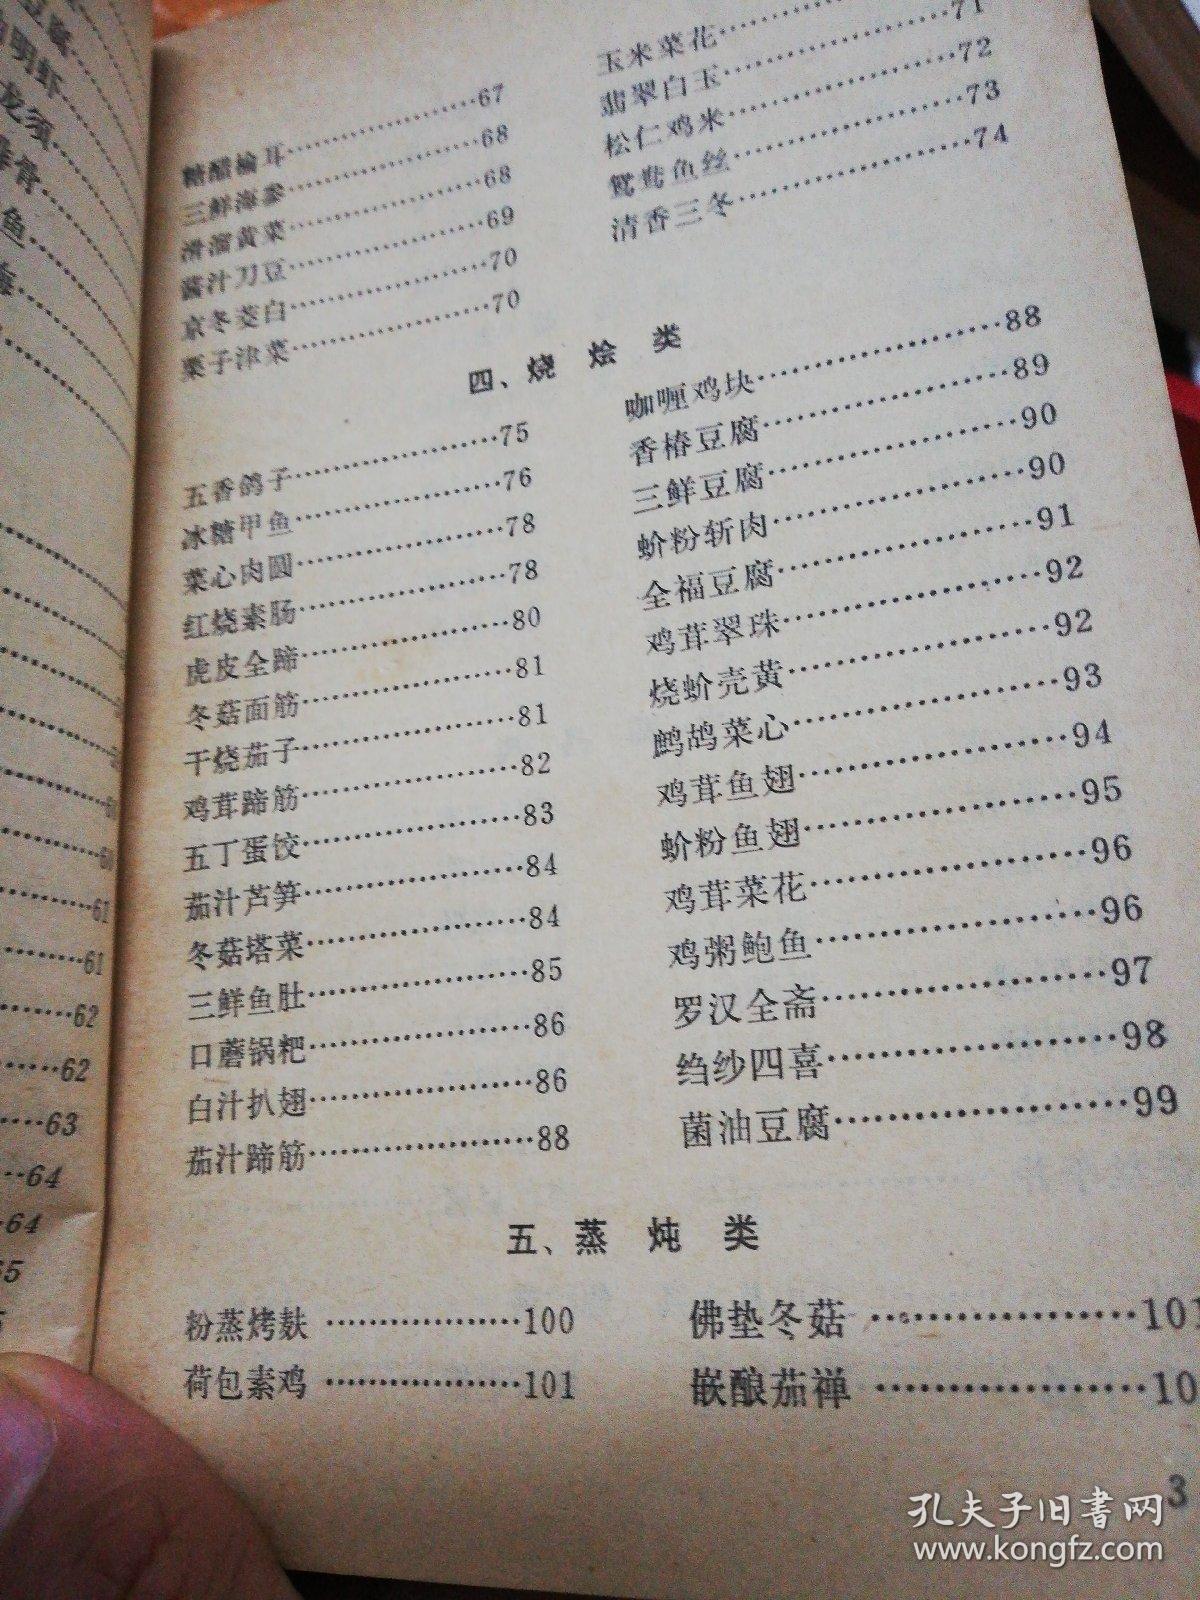 糖醋榆耳……67
三鲜海参……68
滑溜黄菜……68
酱汁刀豆……69
京冬茭白……70
栗子津菜……70
玉米菜花……
翡翠白玉……71
松仁鸡米……72
鸳鸯鱼丝……73
清香三冬……74
四、烧烩类
五香鸽子……75
冰糖甲鱼……76
菜心肉圆……78
红烧素肠……78
虎皮全蹄……80
冬菇面筋……81
干烧茄子……81
鸡茸蹄筋……82
五丁蛋饺……83
茄汁芦笋……84
冬菇塔菜……84
三鲜鱼肚……85
口蘑锅粑……86
白汁扒翅……86
茄汁蹄筋……88
咖喱鸡块……88
香椿豆腐……89
三鲜豆腐……90
蚧粉斩肉……90
全福豆腐……91
鸡茸翠珠……92
烧蚧壳黄……92
鹧鸪菜心……93
鸡茸鱼翅……94
蚧粉鱼翅……95
鸡茸菜花……96
鸡粥鲍鱼……96
罗汉全斋……97
绉纱四喜……98
菌油豆腐……99
五、蒸炖类
粉蒸烤麸……100
荷包素鸡……101
佛垫冬菇……101
嵌酿茄禅……10
3
61
61
62
62
63
64
64
孔夫子旧书网
www.kongfz.com